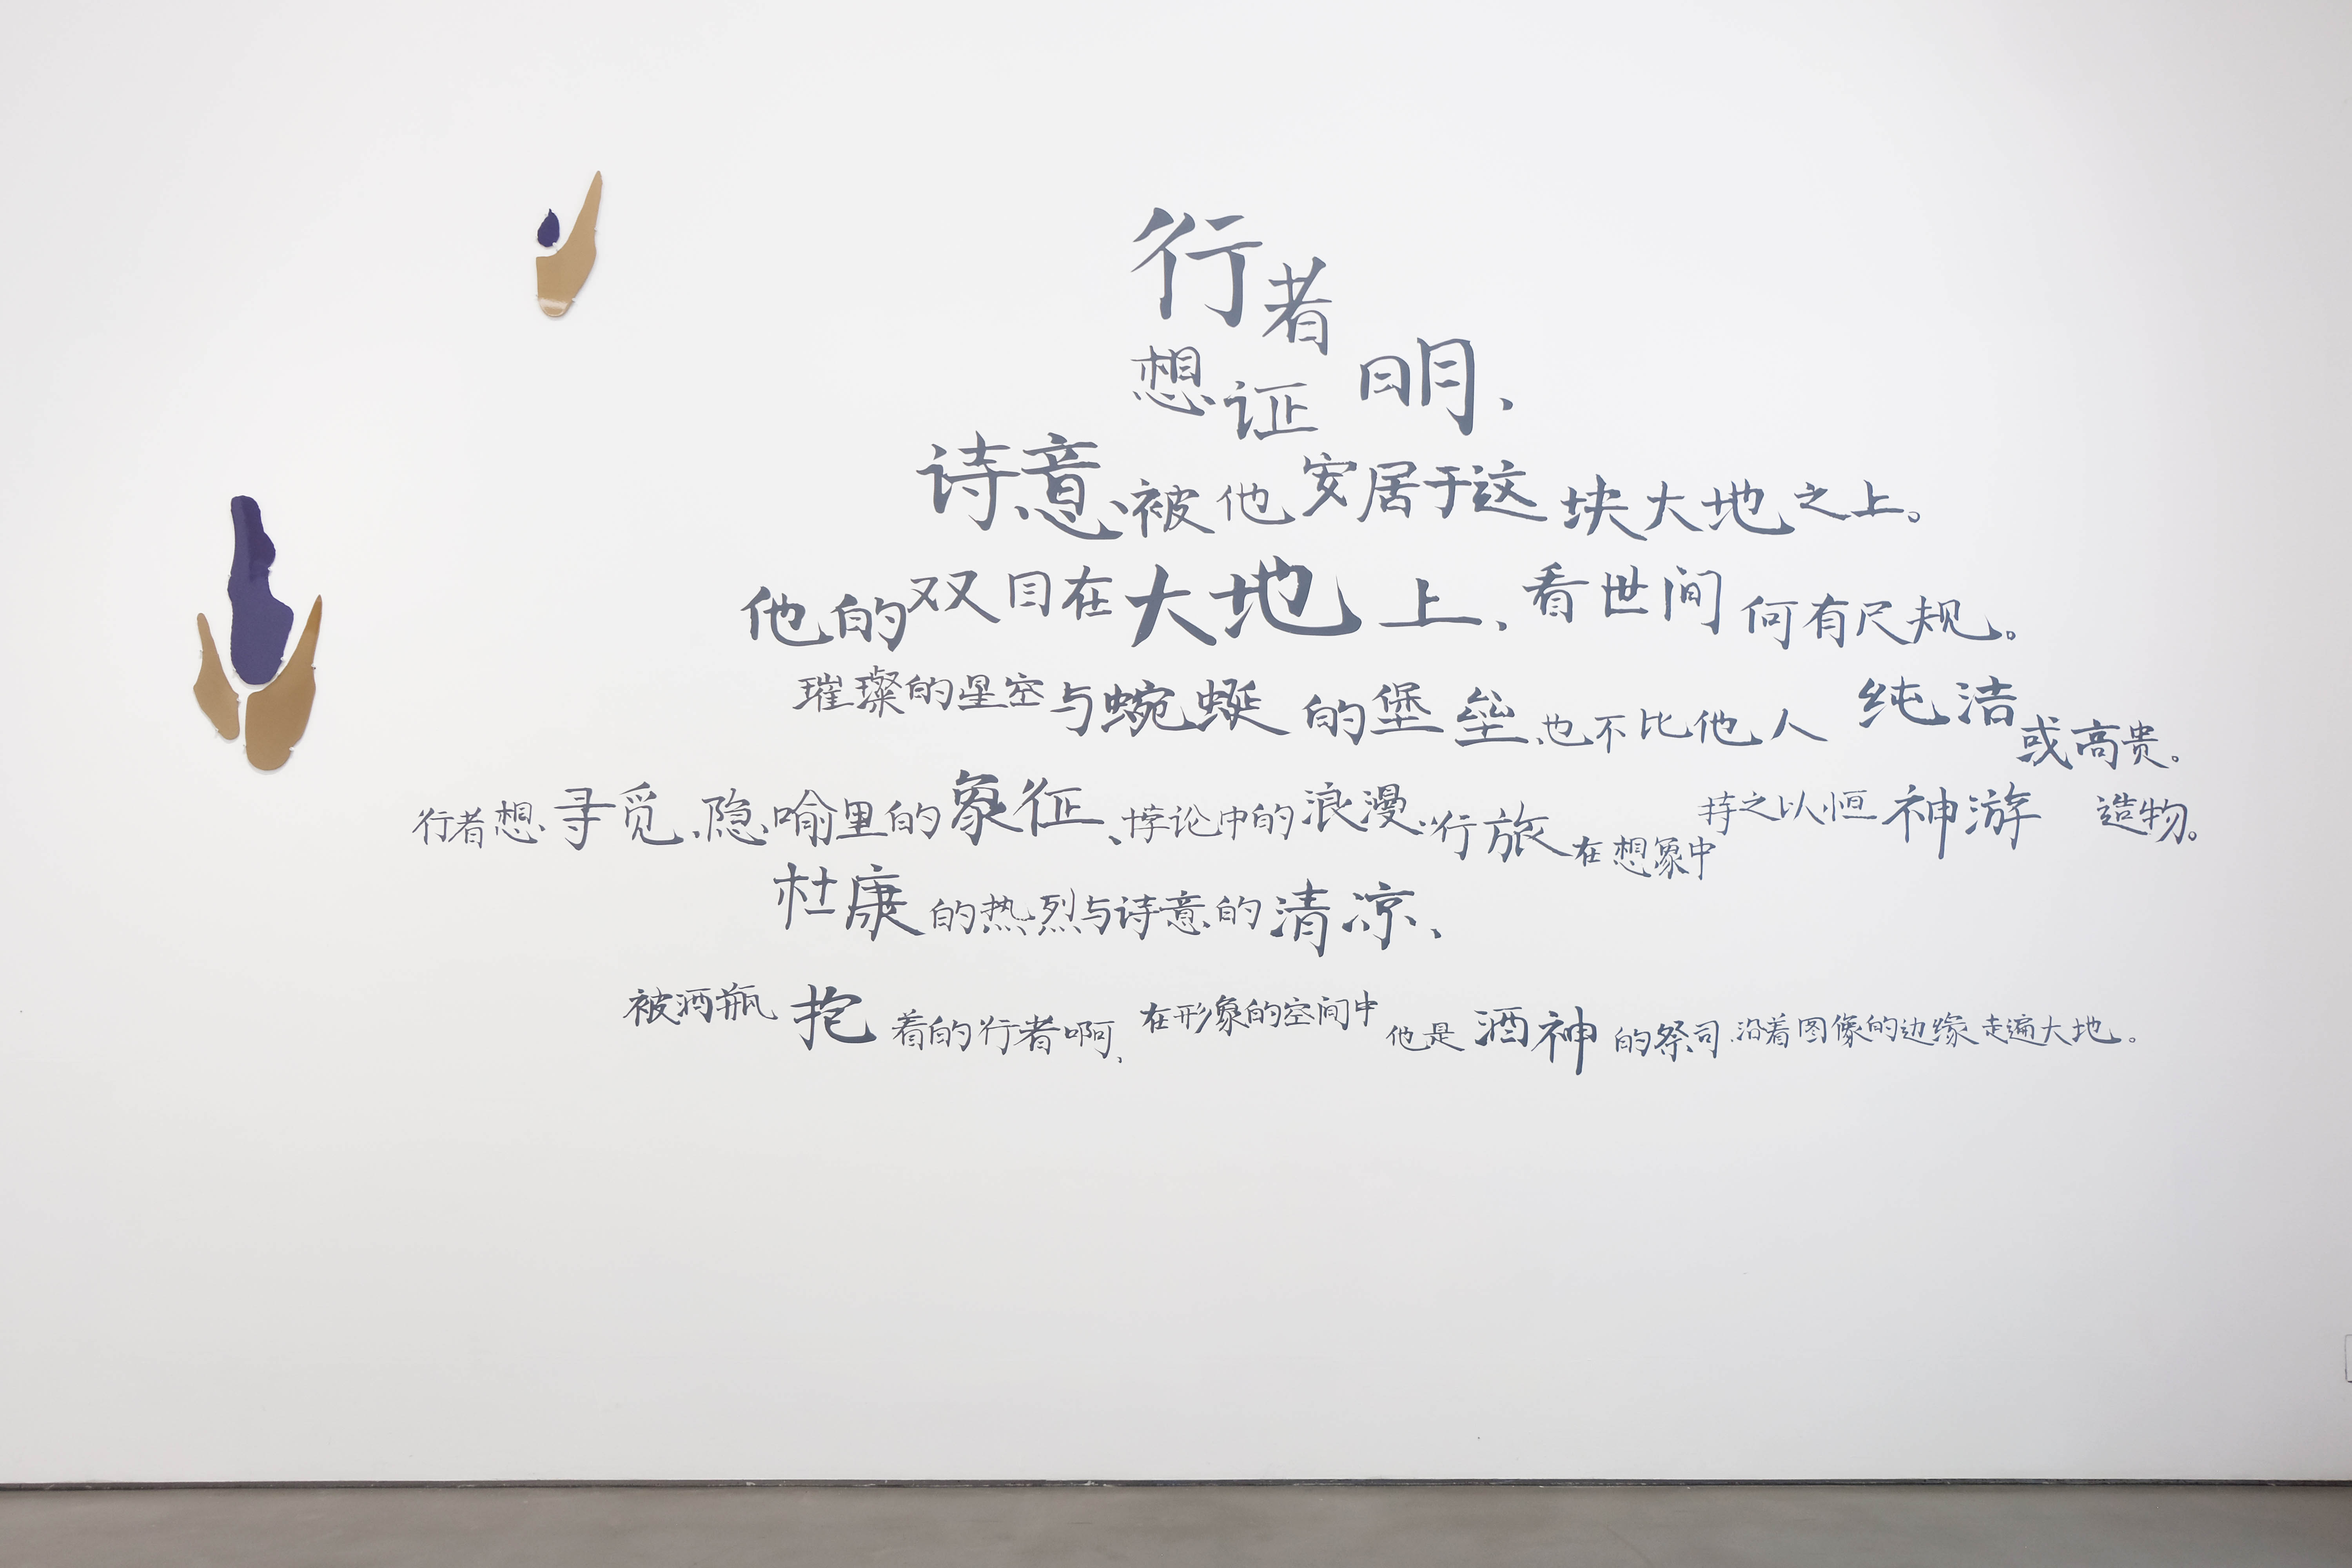 行者
想证明、
诗意被他安居于这块大地之上。
他的双目在大地上、看世间何有尺规。
璀璨的星空与蜿蜒的堡垒也不比他人纯洁或高贵。
行者想寻觅、隐喻里的象征、悖论中的浪漫、行旅在想象中持之以恒神游造物。
杜康的热烈与诗意的清凉、
被酒瓶抱着的行者啊、在形象的空间中他是酒神的祭司、沿着图像的边缘走遍大地。